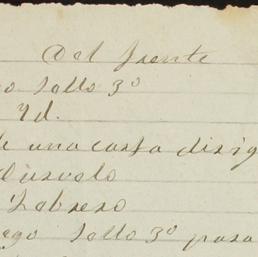 Del frente
o sello 3º
Id.
e una carta dirig
Febrero
ego sello 3º para